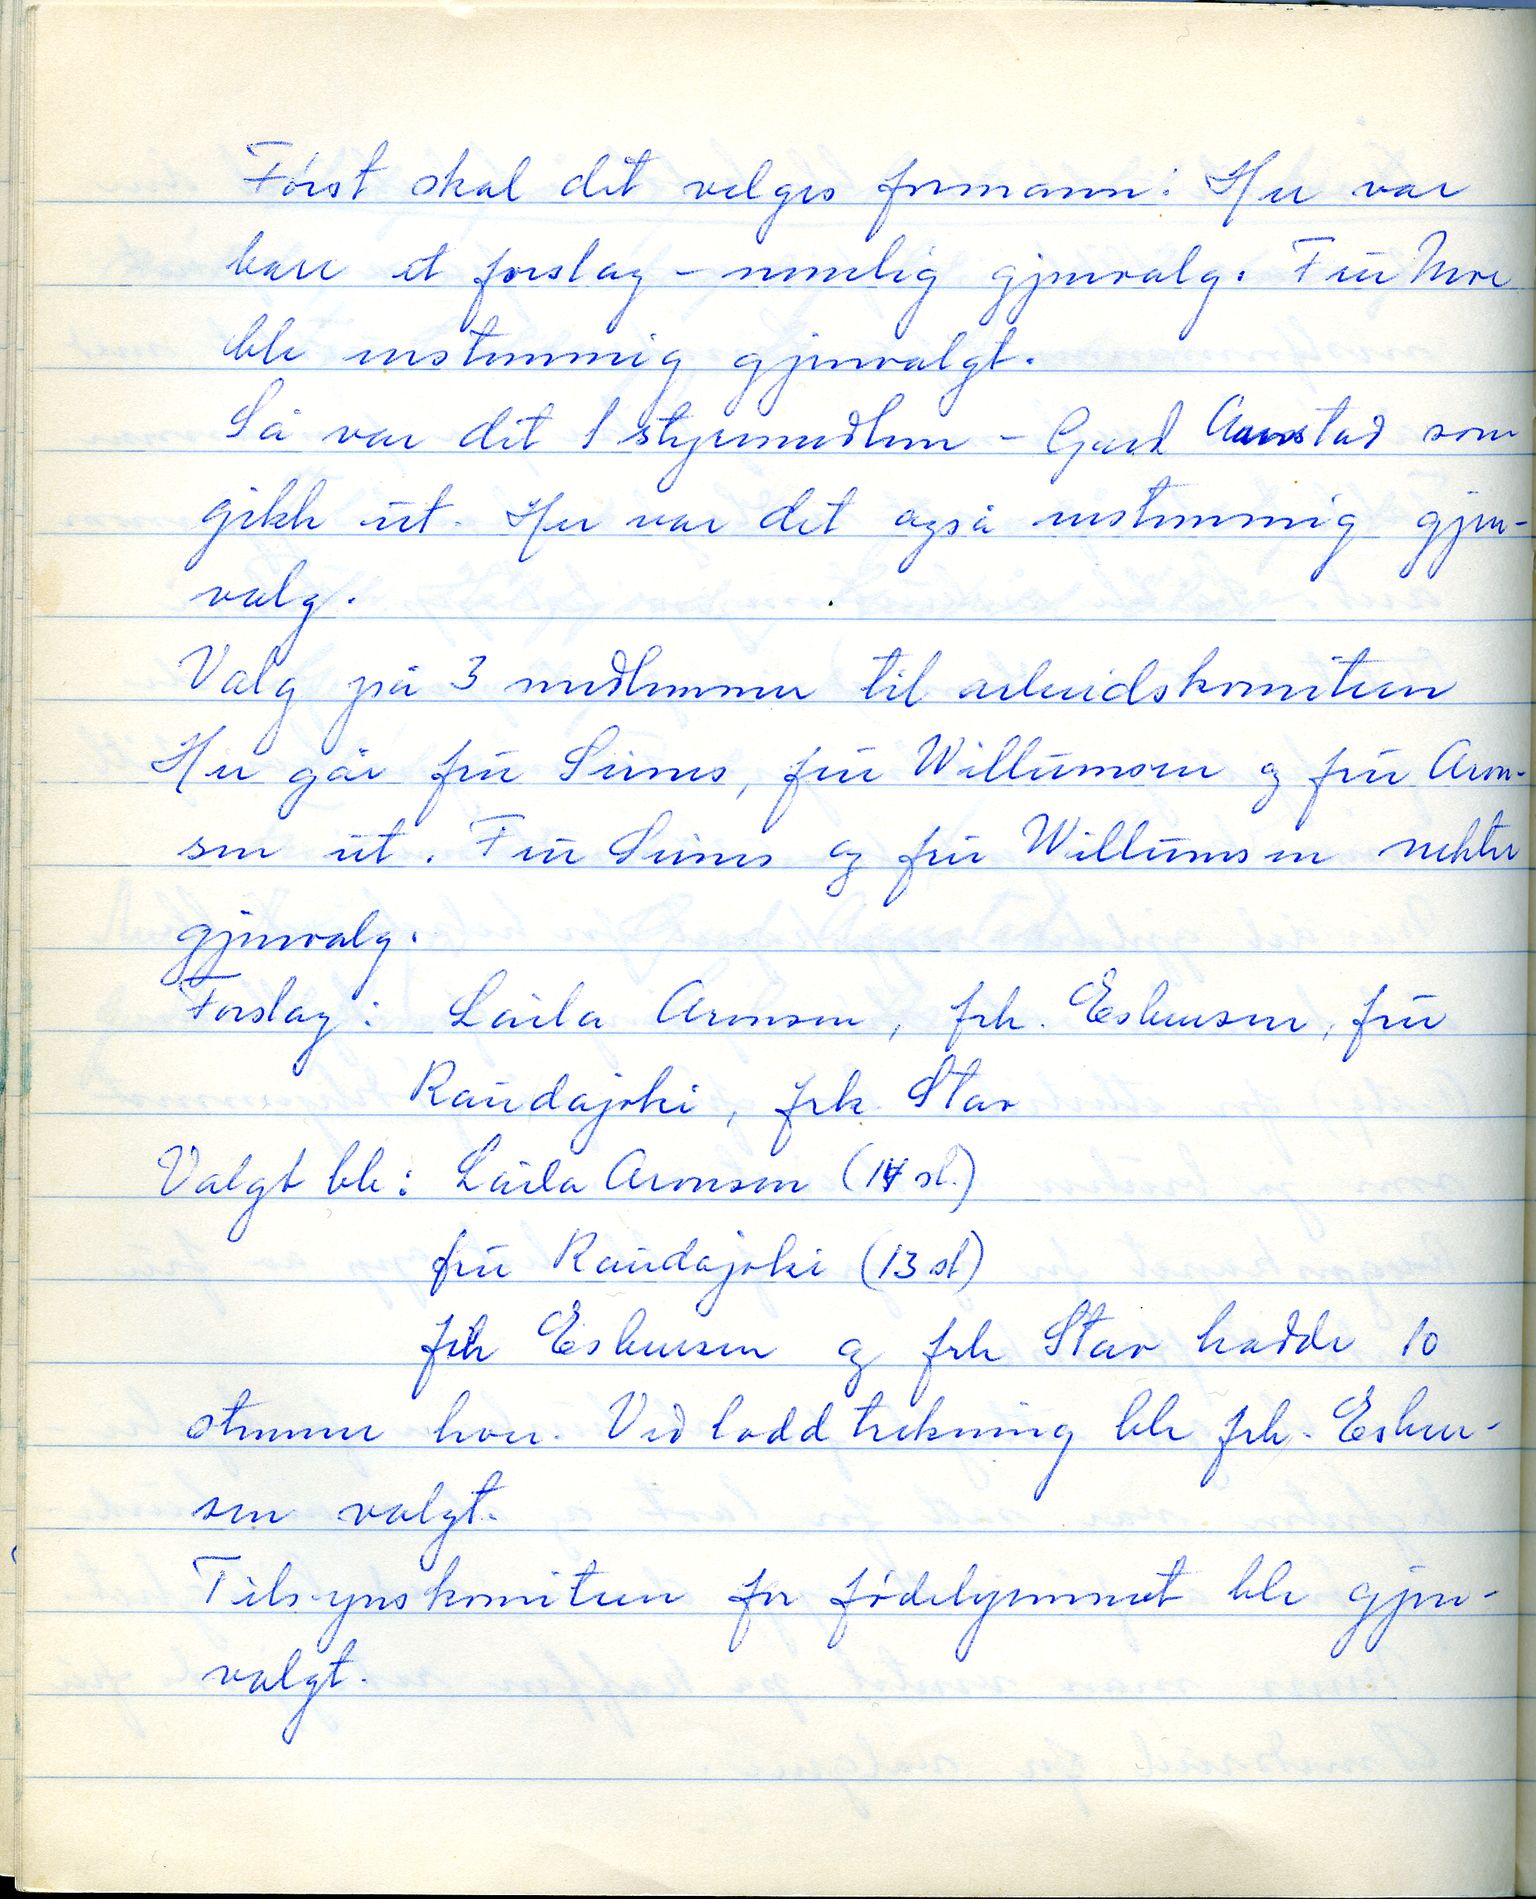 Først skal det velges formann: Her var
bare et forslag - nemlig gjenvalg. Fru Moe
ble enstemmig gjenvalgt.
Så var det 1 styremedlem - Gerd Aunstad som
gikk ut. Her var det også enstemmig gjen-
valg.
Valg på 3 medlemmer til arbeidskomiteen
Her går fru Siines, fru Willumsen og fru Aron-
sen ut. Fru Siines og fru Willumsen nekter
gjenvalg.
Forslag: Laila Aronsen, frk. Esbensen, fru
Raudajoki, frk. Stav
Valgt ble: Laila Aronsen (14 st.)
fru Raudajoki (13 st)
frk Esbensen og frk Stav hadde 10
stemmer hver. Ved loddtrekning ble frk. Esben-
sen valgt.
Tilsynskomiteen for fødehjemmet ble gjen-
valgt.